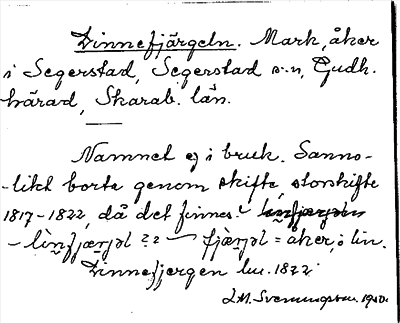 Linnefjärgeln. Mark, åker
i Segerstad, Segerstad s:n, Gudh.
härad, Skarab. län.
Namnet ej i bruk. Sanno-
-likt borta genom skifte, storskifte
1817-1822, då det finnes.
- lìnfjærəl ?? - fjærəl = åker, i lin.
Linnefjergen lm. 1822